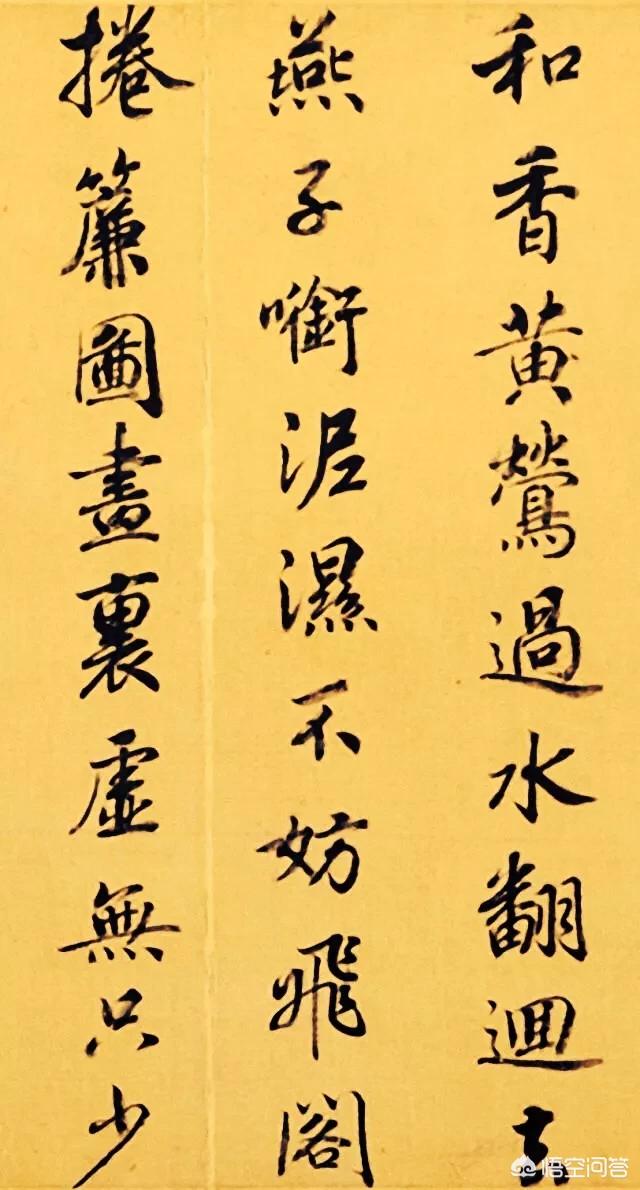 和香黄鶯過水翻迴去
燕子㘅泥濕不妨飛閣
捲簾圖畫裏虛無只少
悟空问答